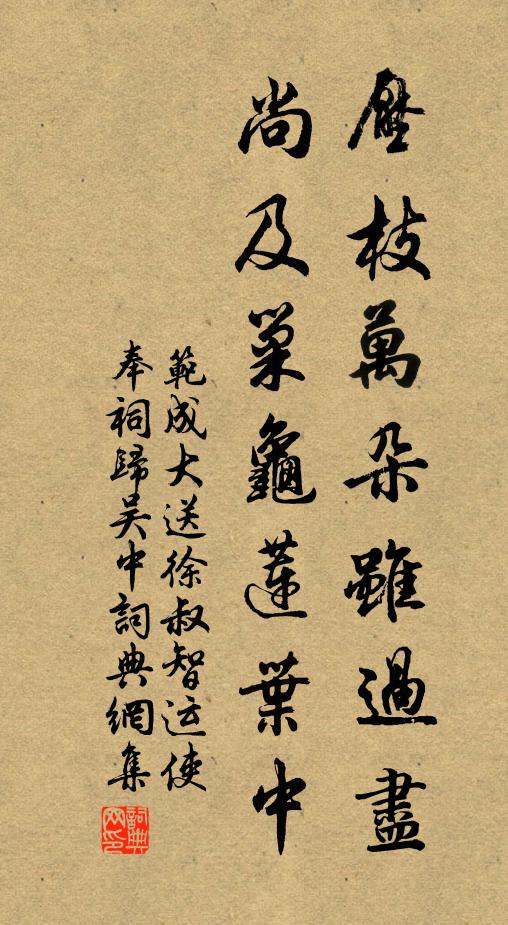 壓枝萬朵雖過盡
尚及巢龜蓮葉中
範成大送徐叔智运使
奉祠歸吴中詞典網集
詞典网印